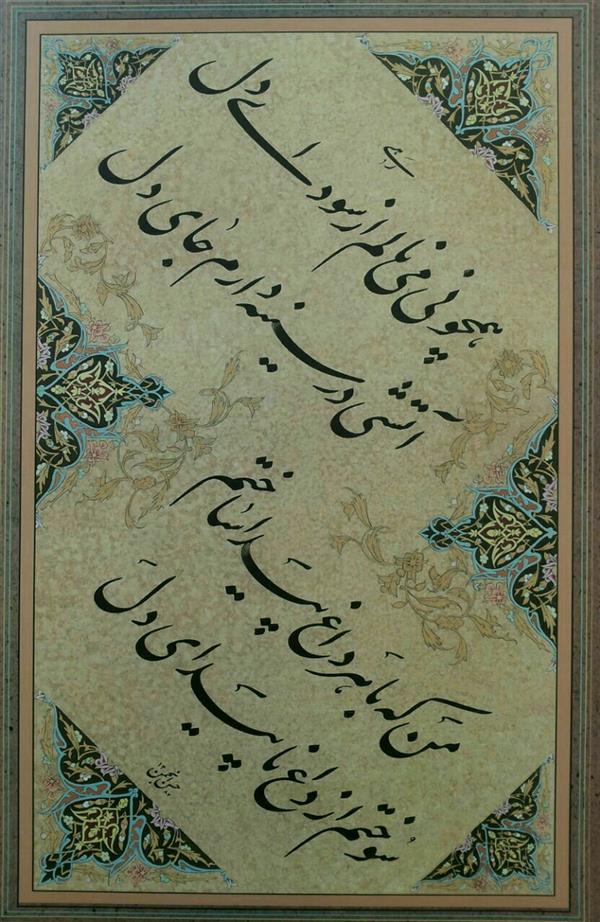 رهی
همچو نی می نالم از سودای دل
آتشی در سینه دارم جای دل
من که با هر داغ پیدا ساختم
سوختم از داغ ناپیدای دل